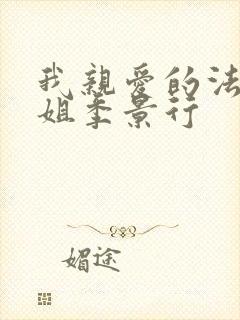 我親愛的法
姐季景行
媚途